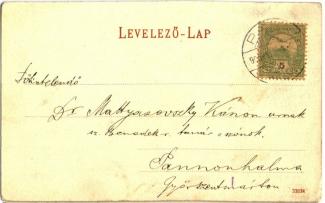 LEVELEZŐ-LAP
5
Főtisztelendő
Dr. Mattyasovszky Kánon urnak
sz. Benedekr. tanár
Pannonhalma
Győrszentmárton